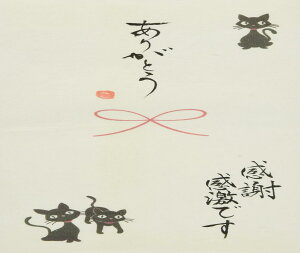 ありがとう
感謝
感激です